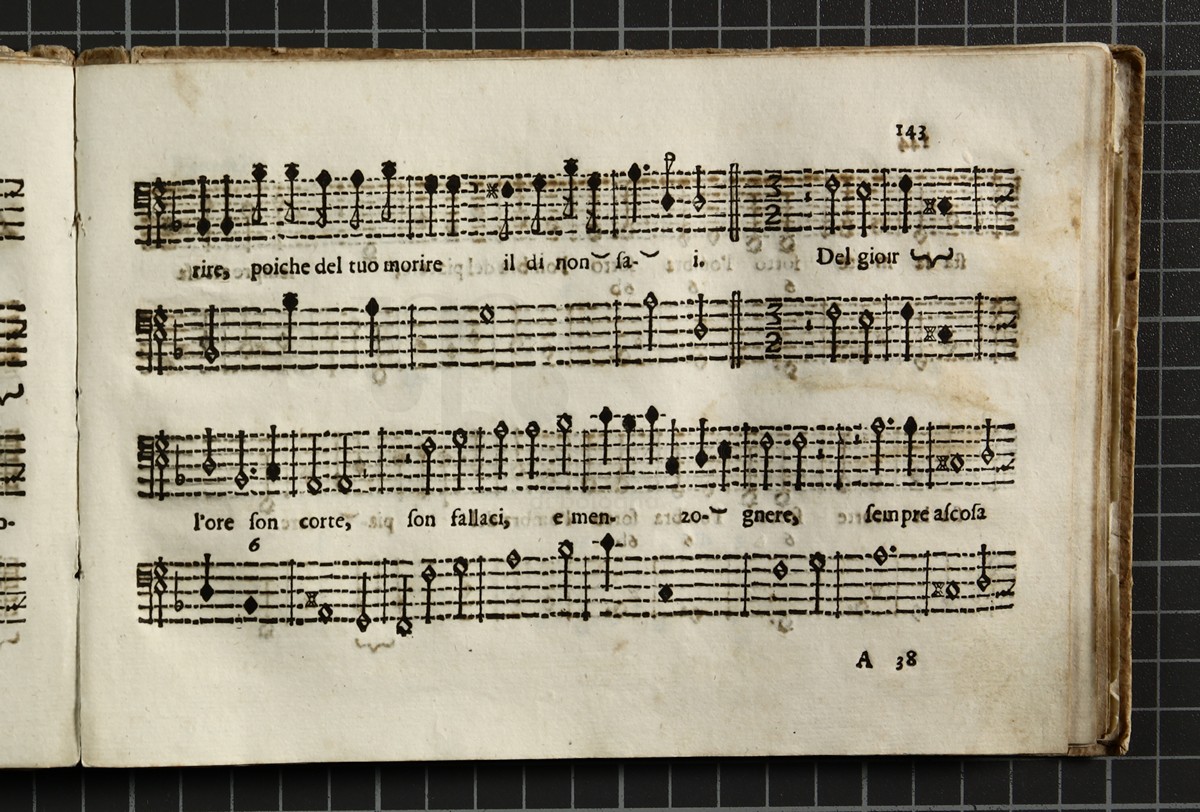 143
rire, poiche del tuo morire il di non sa- i. Del gioir
l'ore son corte, son fallaci, e men- zo- gnere, sempre ascosa
6
A 38